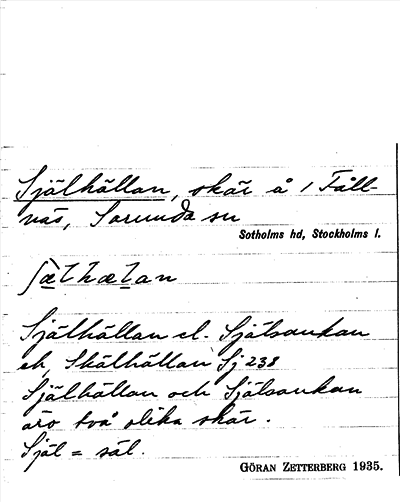 Själhällan, skär å 1 Fåll-
näs, Sorunda sn
Sotholms hd, Stockholms l.
ʃæ̀lhælan
Själhällan el. Själsankan
eh, Skälhällan Sj 238
Själhällan och Själsankan
äro två olika skär.
Själ = säl.
GÖRAN ZETTERBERG 1935.